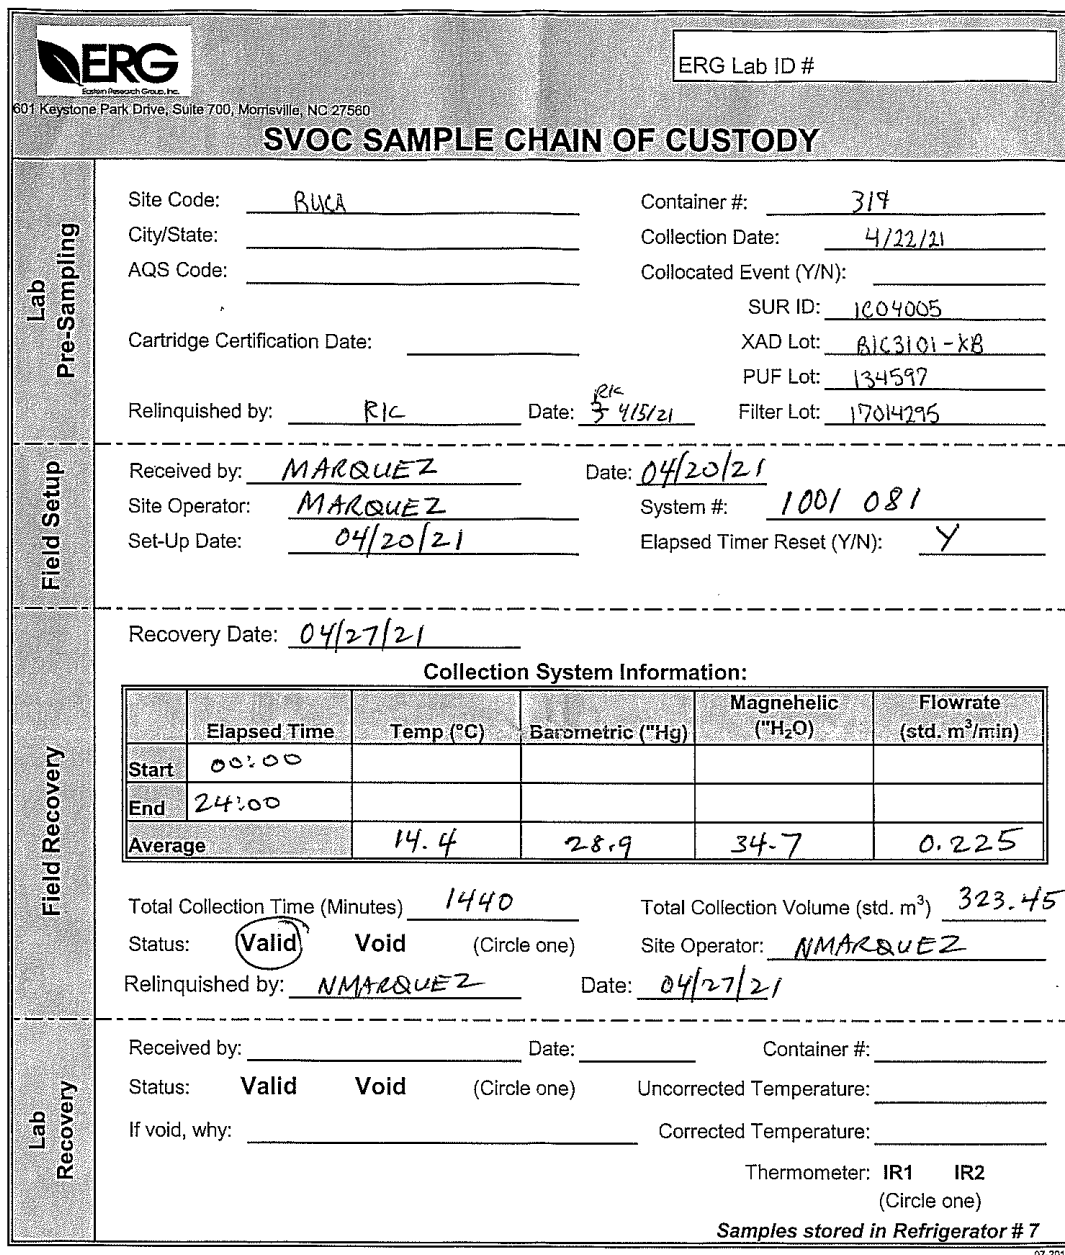 ERG
Eastern Research Group, Inc.
ERG Lab ID #
601 Keystone Park Drive, Suite 700, Morrisville, NC 27560
SVOC SAMPLE CHAIN OF CUSTODY
Lab Pre-Sampling
Site Code: RUCA Container #: 319
City/State: Collection Date: 4/22/21
AQS Code: Collocated Event (Y/N):
SUR ID: 1C04005
Cartridge Certification Date: XAD Lot: B1C3101-XB
PUF Lot: 134597
RIC
Relinquished by: RIC Date: 3 4/5/21 Filter Lot: 17014295
Field Setup
Received by: MARQUEZ Date: 04/20/21
Site Operator: MARQUEZ System #: 1001 081
Set-Up Date: 04/20/21 Elapsed Timer Reset (Y/N): Y
Field Recovery
Recovery Date: 04/27/21
Collection System Information:
Elapsed Time Temp (°C) Barometric ("Hg) Magnehelic ("H₂O) Flowrate (std. m³/min)
Start 00:00
End 24:00
Average 14.4 28.9 34.7 0.225
Total Collection Time (Minutes) 1440 Total Collection Volume (std. m³) 323.45
Status: Valid Void (Circle one) Site Operator: NMARQUEZ
Relinquished by: NMARQUEZ Date: 04/27/21
Lab Recovery
Received by: Date: Container #:
Status: Valid Void (Circle one) Uncorrected Temperature:
If void, why: Corrected Temperature:
Thermometer: IR1 IR2
(Circle one)
Samples stored in Refrigerator # 7